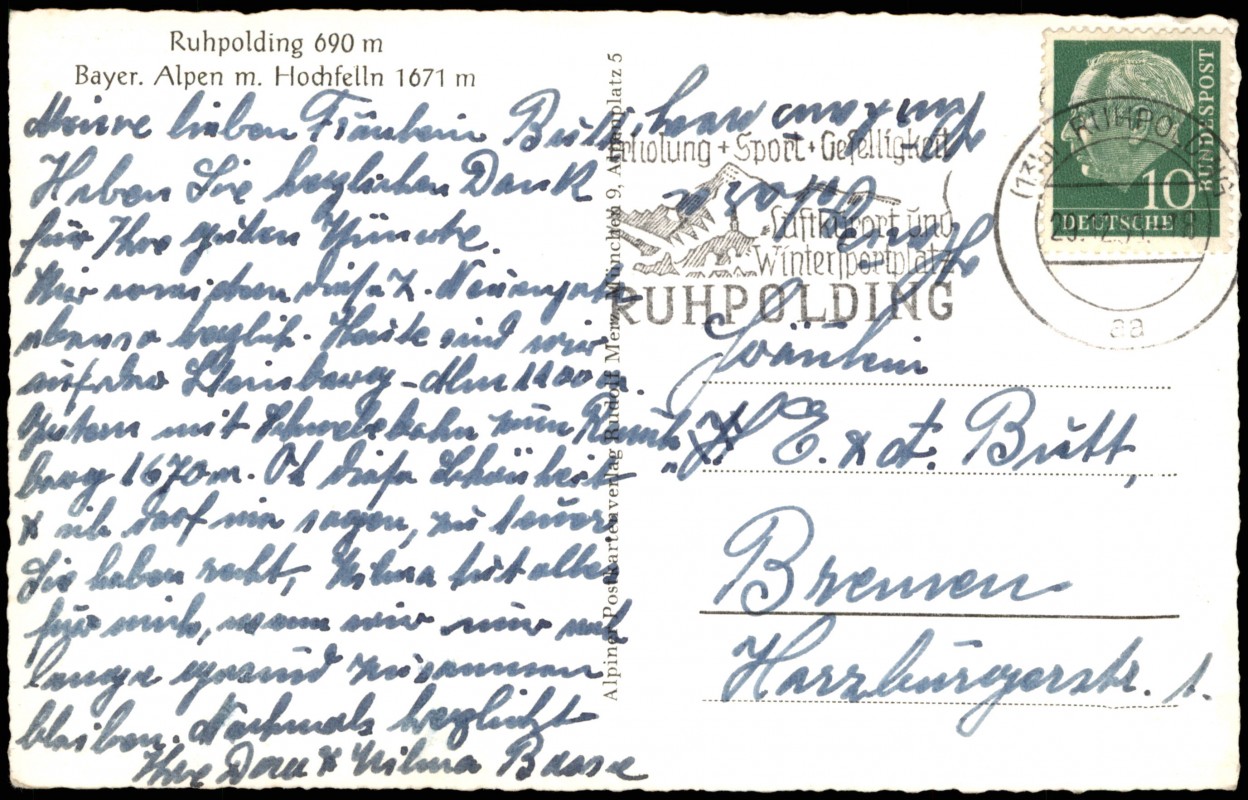 Ruhpolding 690 m
Bayer. Alpen m. Hochfelln 1671 m
Meine lieben Fräulein Butt,
Haben Sie herzlichen Dank
für Ihre guten Wünsche.
Wir wünschen dies z. Neuenjahr
ebenso herzlich. Heute sind wir
auf der Steinberg-Alm 1100 m.
Gestern mit Schwebebahn zum Rausch
berg 1670 m. Oh diese Schönheit
& ich darf nie sagen, zu teuer
Sie haben recht, Wilma tut alles
für mich, wenn wir nur noch
lange gesund zusammen
bleiben. Nochmals herzlichst
Ihre Dora & Wilma Baase
Alpiner Postkartenverlag Rudolf Merz, München 9, Agnesplatz 5
Erholung + Sport + Geselligkeit
Luftkurort und
Wintersportplatz
RUHPOLDING
RUHPOLDING
aa
10
DEUTSCHE
BUNDESPOST
Fräulein
E. & A. Butt,
Bremen
Harzburgerstr. 1.